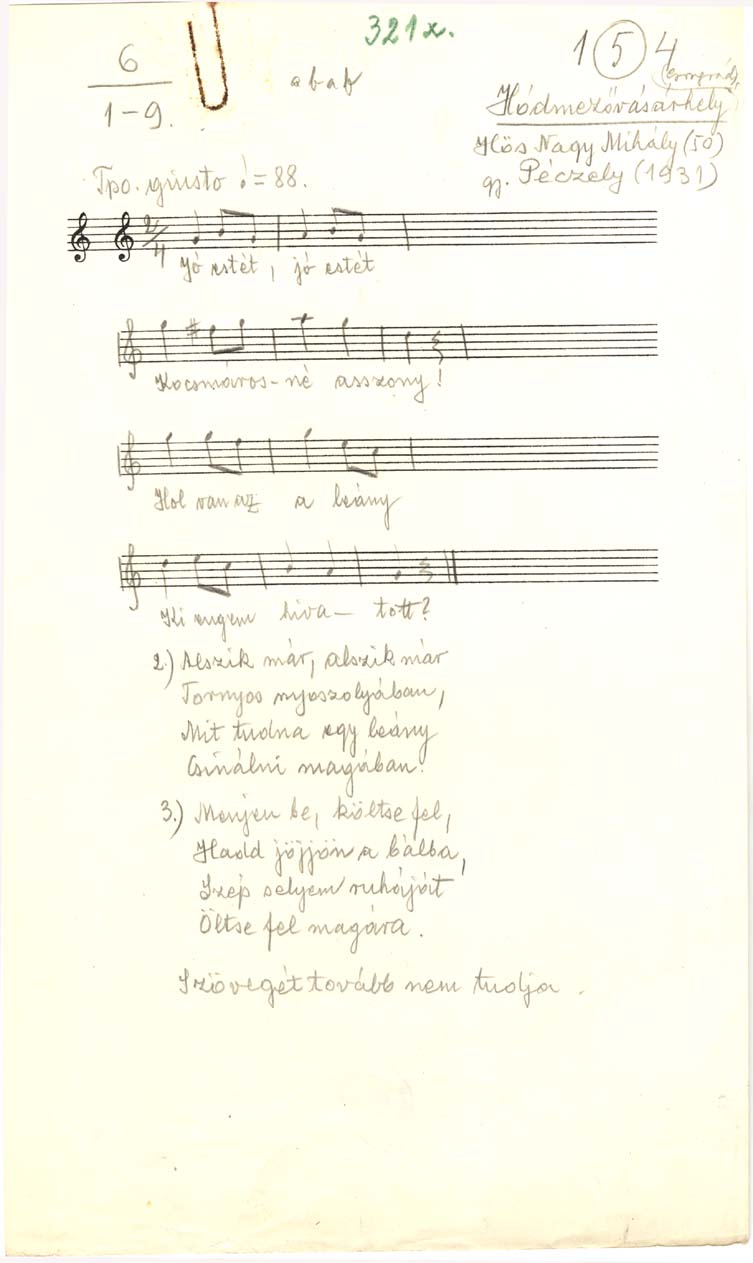 321x.
6
1-9.
a b a b
1 5 4
(Csongrád)
Hódmezővásárhely
Hős Nagy Mihály (50)
gy. Péczely (1931)
Tpo. giusto ♩= 88.
2/4
Jó estét, jó estét
Kocsmáros-né asszony!
Hol van az a leány
Ki engem hiva- tott?
2.) Alszik már, alszik már
Tornyos nyoszolyában,
Mit tudna egy leány
Csinálni magában.
3.) Menjen be, költse fel,
Hadd jöjjön a bálba,
Szép selyem ruháját
Öltse fel magára.
Szövegét tovább nem tudja.